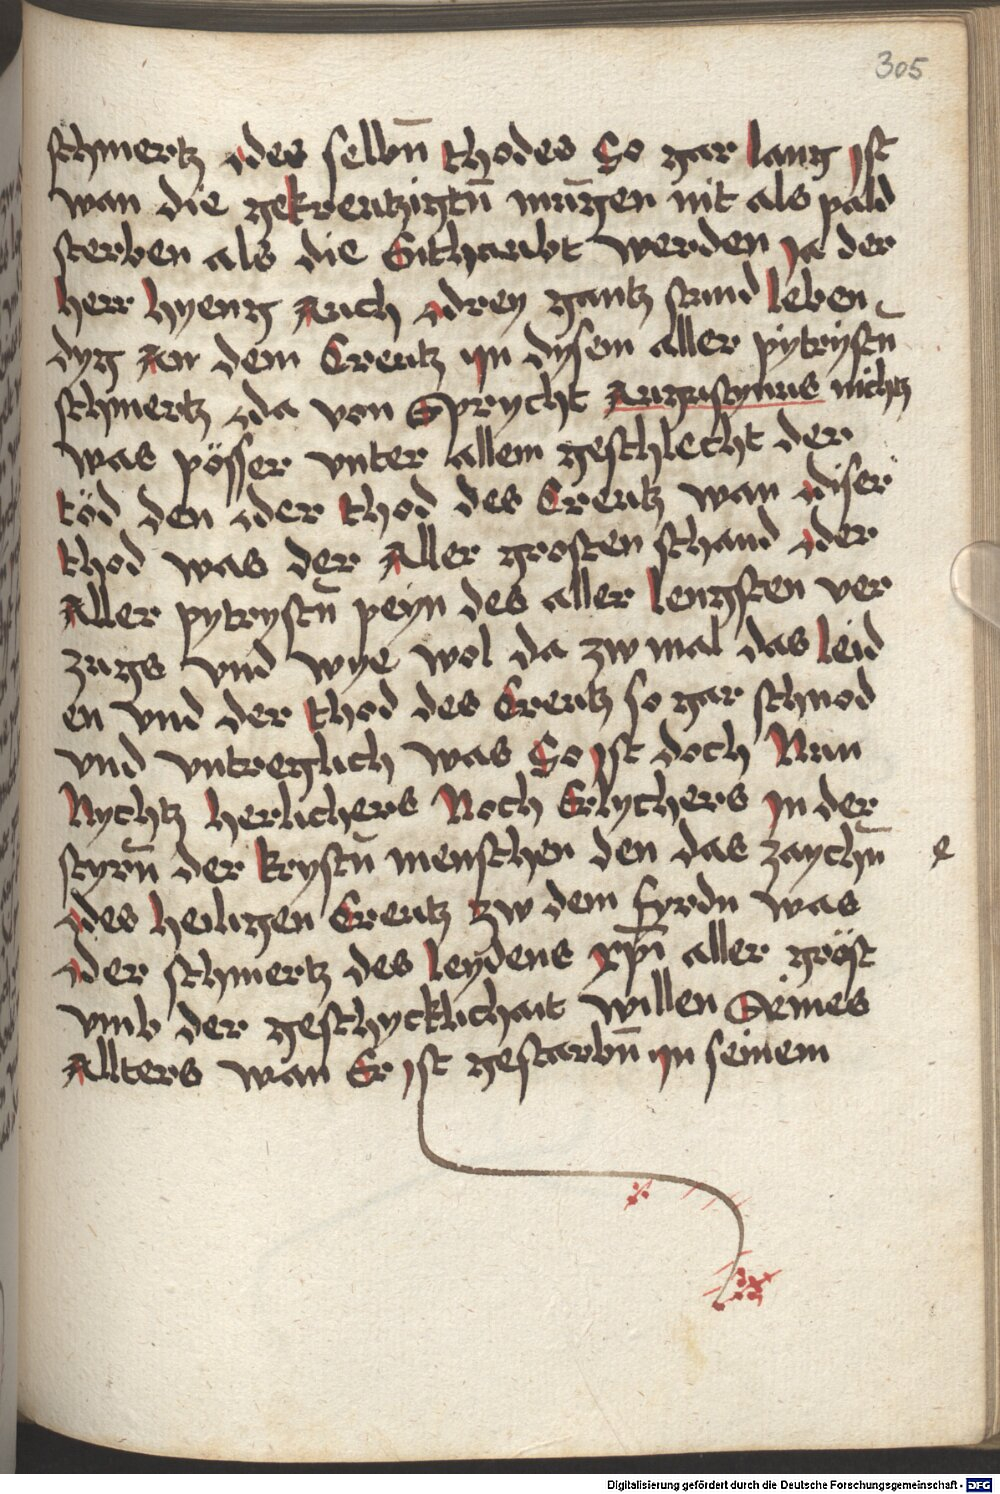 305
schmertz des selbn̄ thodes So gar lang ist
wan die gekreutzigtn̄ mūgen nit als pald
sterben als die Enthaubt werden Ja der
herr hyeng Auch drey gantz stund leben
dyg An dem Creutz yn dysem aller pytrystn̄
schmertz da von Sprycht Augustynus nichtz
was pösser vnter allem geschlecht der
töd den der thod des Creutz wan diser
thod was der Aller grosten schand der
Aller pytrystn̄ peyn des aller lengsten ver
zugs vnd wye wol da zw mal das leid
en vnd der thod des Creutz so gar schnod
vnd vntreglich was So ist doch Nun
Nychtz herlichers Noch Erlychers In der
styrn̄ der krystn̄ menschen den das zaychn̄
des heiligen Creutz zw dem fyrdn was
der schmertz des leydens xp̄i aller gröst
vmb der geschycklichait willen Seines
Allters wan Er ist gestarbn̄ yn seinem
Digitalisierung gefördert durch die Deutsche Forschungsgemeinschaft - DFG